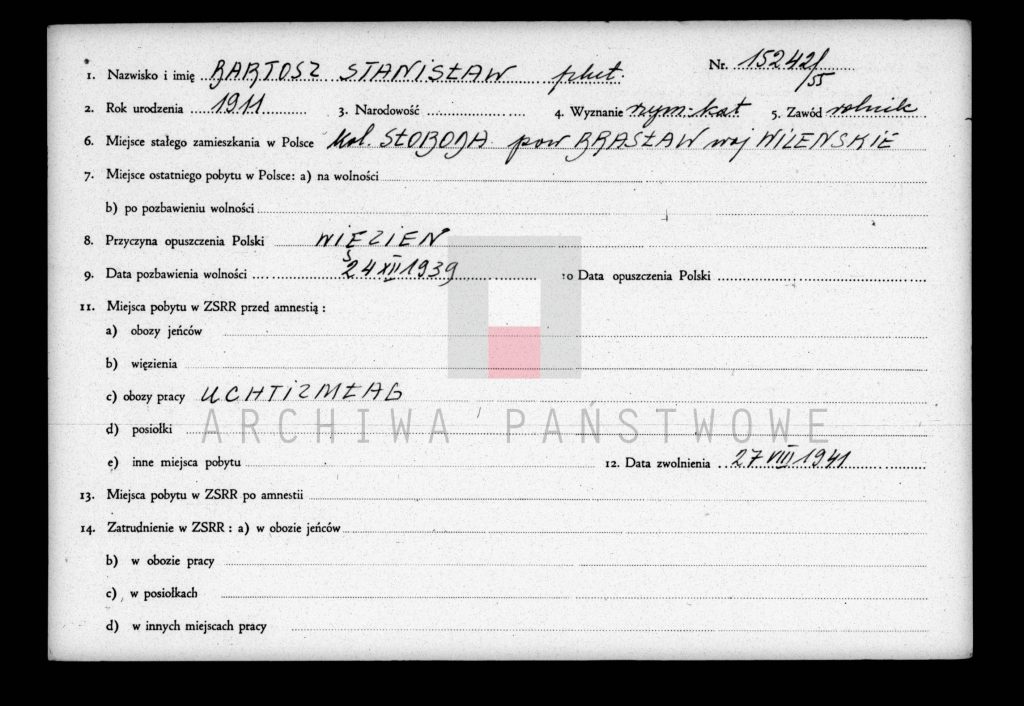 1. Nazwisko i imię BARTOSZ STANISŁAW plut. Nr. 15242/55
2. Rok urodzenia 1911 3. Narodowość 4. Wyznanie rzym-kat 5. Zawód rolnik
6. Miejsce stałego zamieszkania w Polsce kol. SŁOBODA pow BRASŁAW woj WILEŃSKIE
7. Miejsce ostatniego pobytu w Polsce: a) na wolności
b) po pozbawieniu wolności
8. Przyczyna opuszczenia Polski WIĘZIEŃ
9. Data pozbawienia wolności 24 XII 1939 10 Data opuszczenia Polski
11. Miejsca pobytu w ZSRR przed amnestią :
a) obozy jeńców
b) więzienia
c) obozy pracy UCHTIŻMŁAG
ARCHIWA PAŃSTWOWE
d) posiołki
e) inne miejsca pobytu 12. Data zwolnienia 27 VIII 1941
13. Miejsca pobytu w ZSRR po amnestii
14. Zatrudnienie w ZSRR : a) w obozie jeńców
b) w obozie pracy
c) w posiołkach
d) w innych miejscach pracy